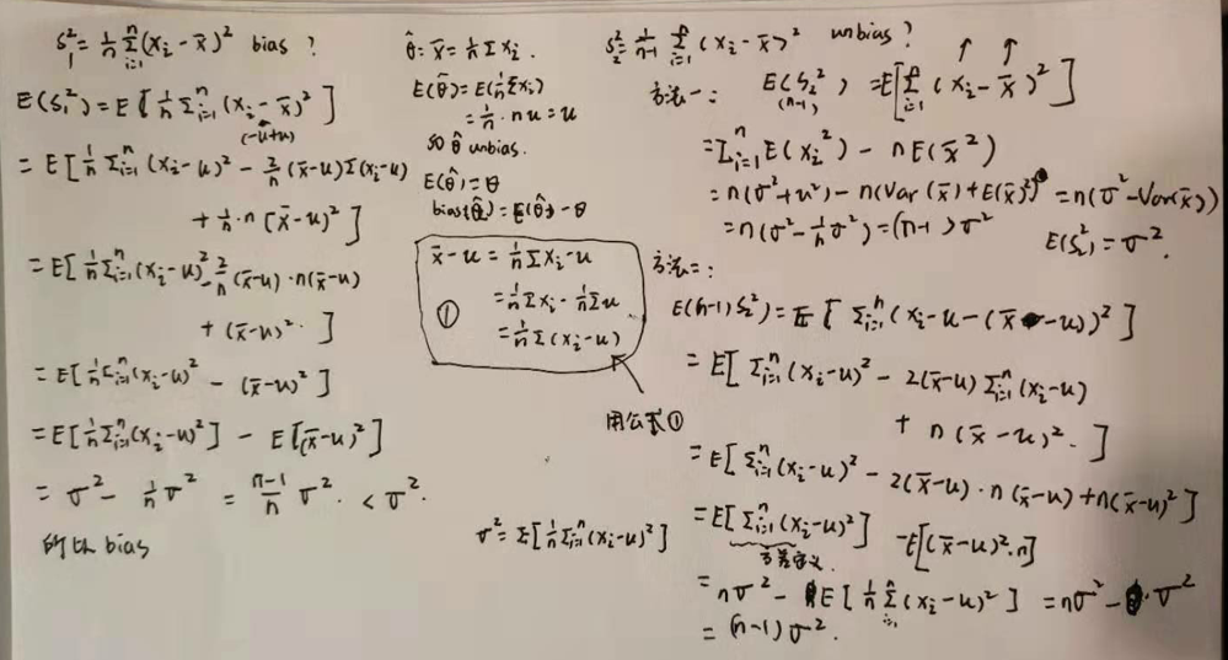 S₁² = 1/n Σᵢ₌₁ⁿ (xᵢ - x̄)² bias ?
E(S₁²) = E [ 1/n Σᵢ₌₁ⁿ (xᵢ - x̄)² ]
(-u+u)
= E [ 1/n Σᵢ₌₁ⁿ (xᵢ - u)² - 2/n (x̄-u) Σ(xᵢ-u)
+ 1/n · n [x̄-u)² ]
= E[ 1/n Σᵢ₌₁ⁿ (xᵢ-u)² - 2/n (x̄-u) · n(x̄-u)
+ (x̄-u)² · ]
= E[ 1/n Σᵢ₌₁ⁿ (xᵢ-u)² - (x̄-u)² ]
= E[ 1/n Σᵢ₌₁ⁿ (xᵢ-u)² ] - E[(x̄-u)² ]
= σ² - 1/n σ² = n-1/n σ² · < σ² .
所以 bias
θ̂: x̄ = 1/n Σ xᵢ .
E(θ̂) = E(1/n Σxᵢ)
= 1/n · nu = u
so θ̂ unbias.
E(θ̂) = θ
bias(θ̂) = E(θ̂) - θ
x̄ - u = 1/n Σ xᵢ - u
① = 1/n Σ xᵢ - 1/n Σ u
= 1/n Σ (xᵢ - u)
用公式①
σ² = Σ[ 1/n Σᵢ₌₁ⁿ (xᵢ-u)² ]
S₂² = 1/n-1 Σᵢ₌₁ⁿ (xᵢ - x̄)² unbias ?
↑ ↑
方法一: E(S₂²) = E[ Σᵢ₌₁ⁿ (xᵢ - x̄)² ]
(n-1)
= Σᵢ₌₁ⁿ E(xᵢ²) - nE(x̄²)
= n(σ²+u²) - n(Var(x̄) + E(x̄)²) = n(σ² - Var(x̄))
= n(σ² - 1/n σ²) = (n-1)σ²
E(S₂²) = σ² .
方法二:
E((n-1)S₂²) = E [ Σᵢ₌₁ⁿ (xᵢ - u - (x̄ - u))² ]
= E[ Σᵢ₌₁ⁿ (xᵢ-u)² - 2(x̄-u) Σᵢ₌₁ⁿ (xᵢ-u)
+ n(x̄-u)² · ]
= E[ Σᵢ₌₁ⁿ (xᵢ-u)² - 2(x̄-u) · n(x̄-u) + n(x̄-u)² ]
= E[ Σᵢ₌₁ⁿ (xᵢ-u)² ] - E[(x̄-u)² · n]
方差定义.
= nσ² - E[ 1/n Σᵢ₌₁ⁿ (xᵢ-u)² ] = nσ² - · σ²
= (n-1)σ² .